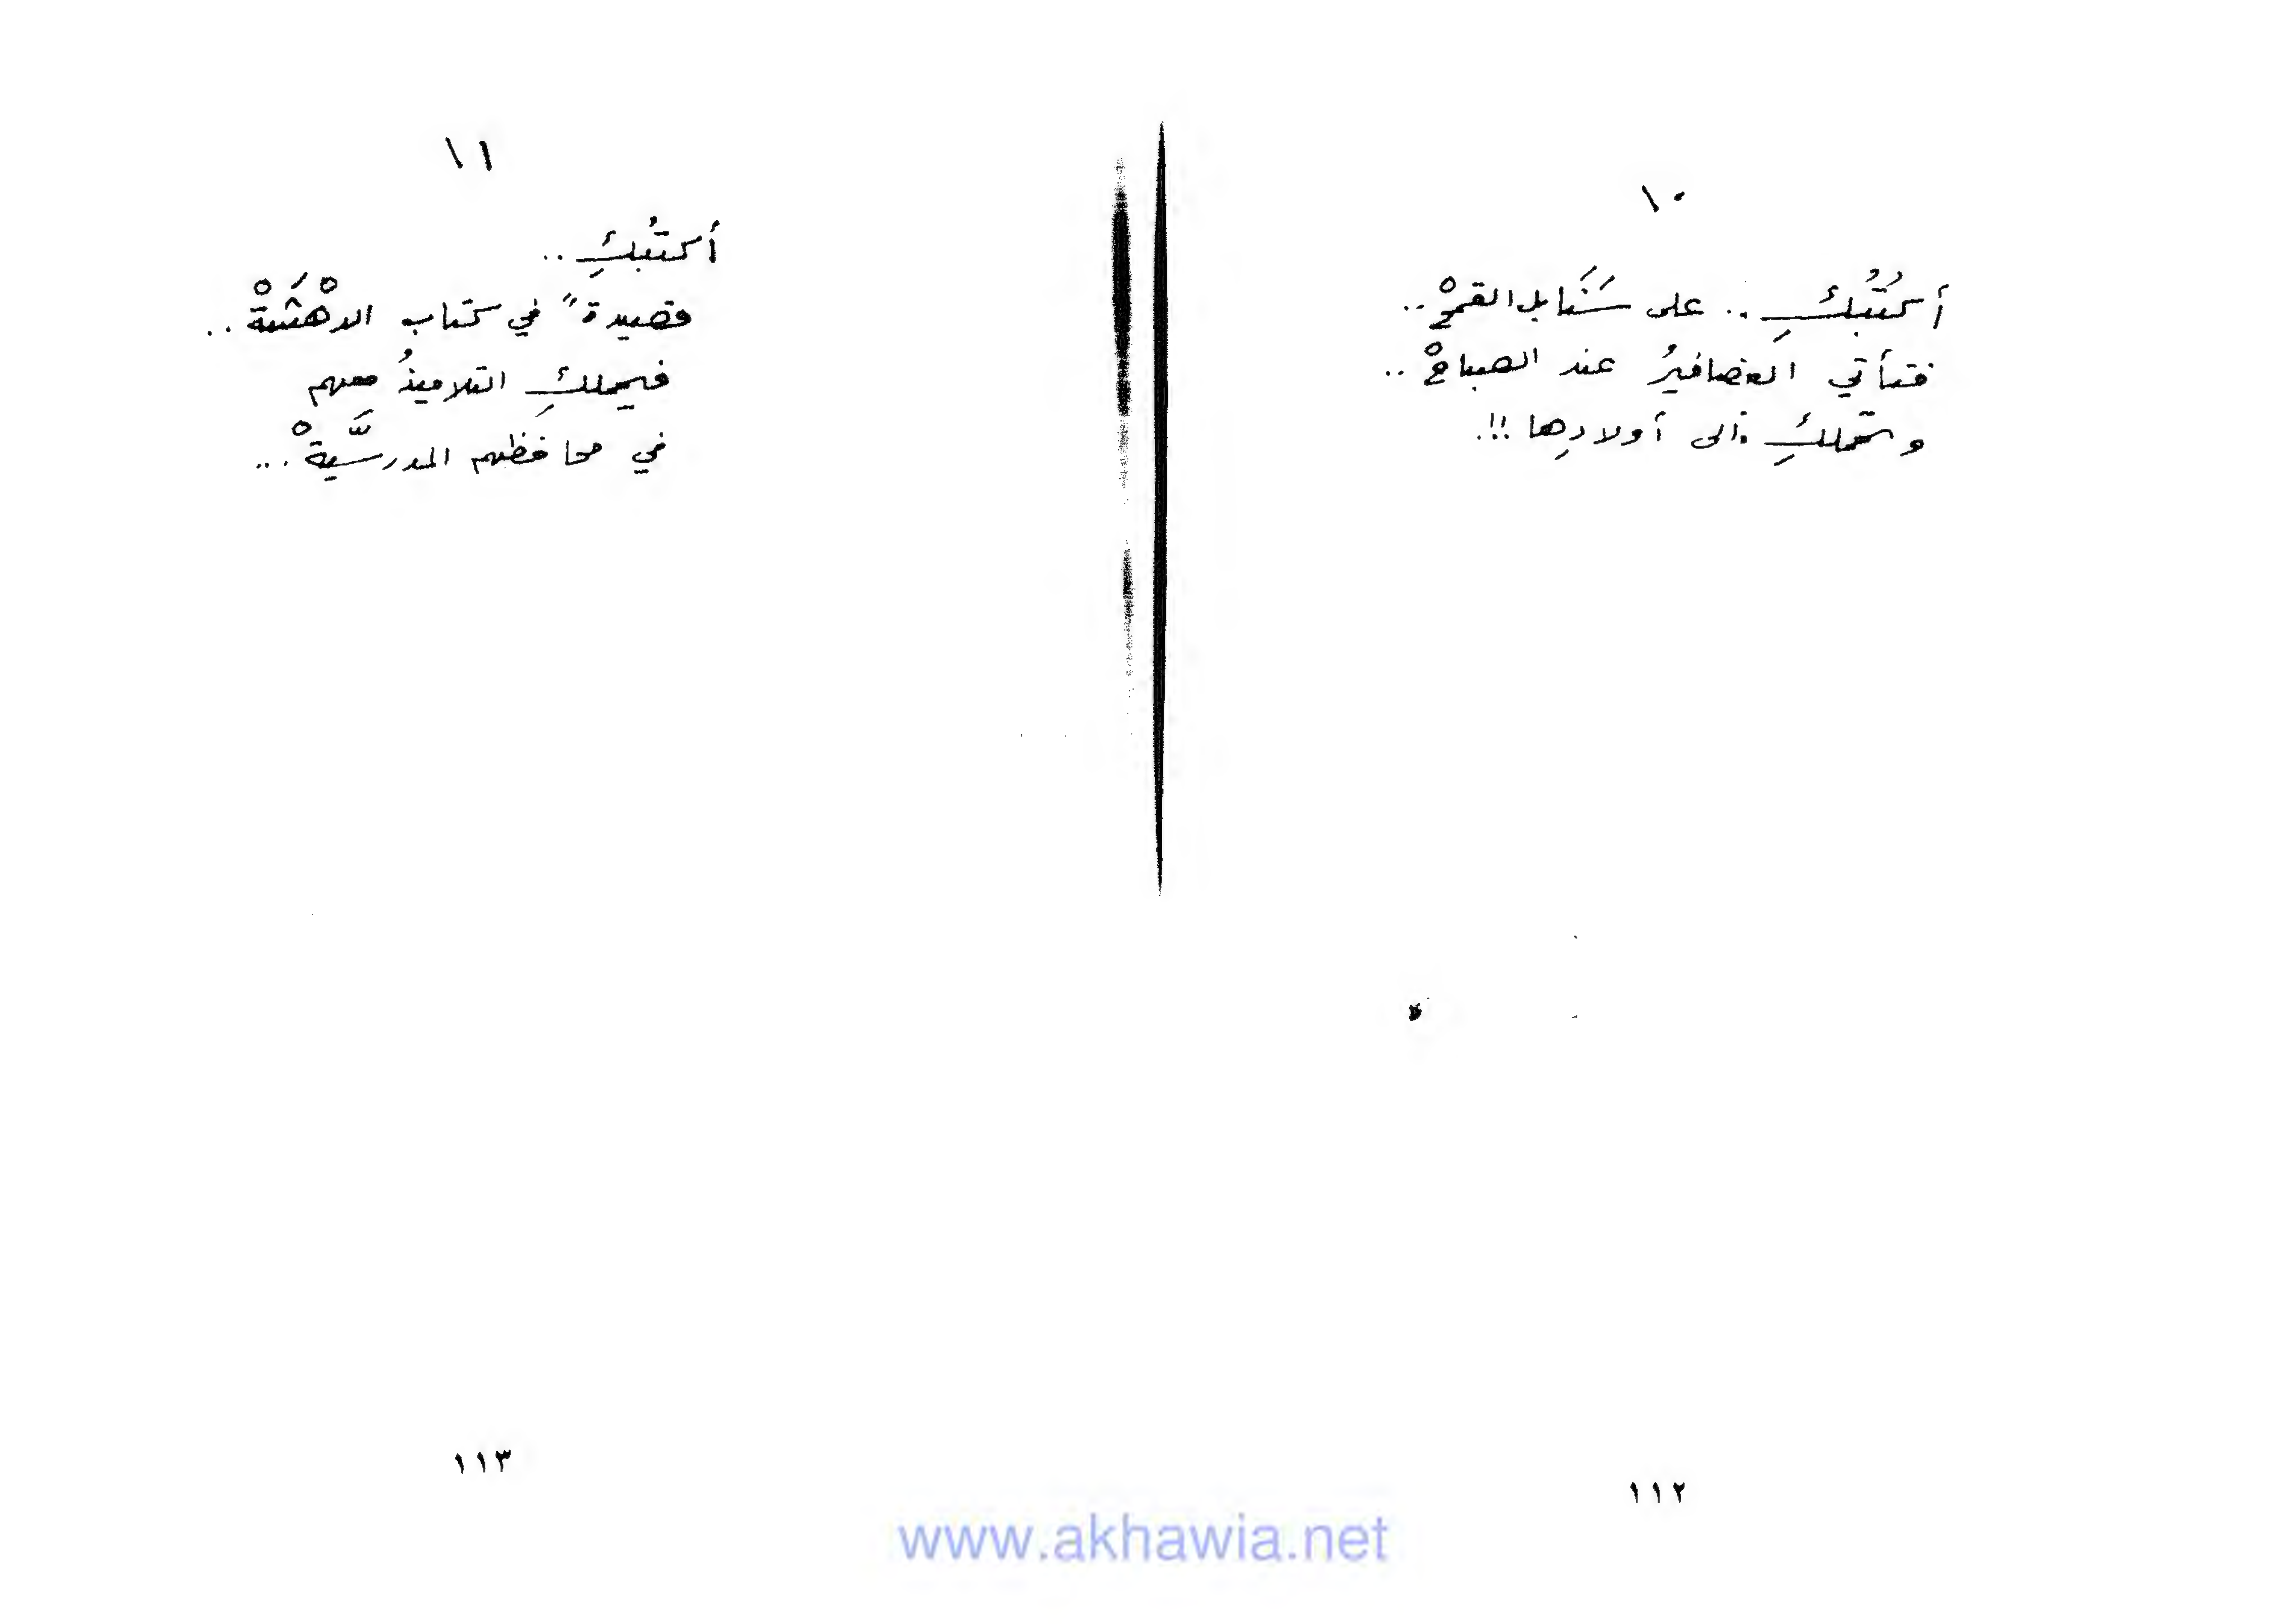 ١٠
أكتُبُكِ .. على سَنَابل القمحْ ..
فتأتي العصافيرُ عند الصباحْ ..
وتحملكِ إلى أولادِها !!.
١١٢
١١
أكتبُكِ ..
قصيدةً في كتاب الدهْشَةْ ..
فيحملكِ التلاميذُ معهم
في محافظهم المدرسيَّةْ ...
١١٣
www.akhawia.net